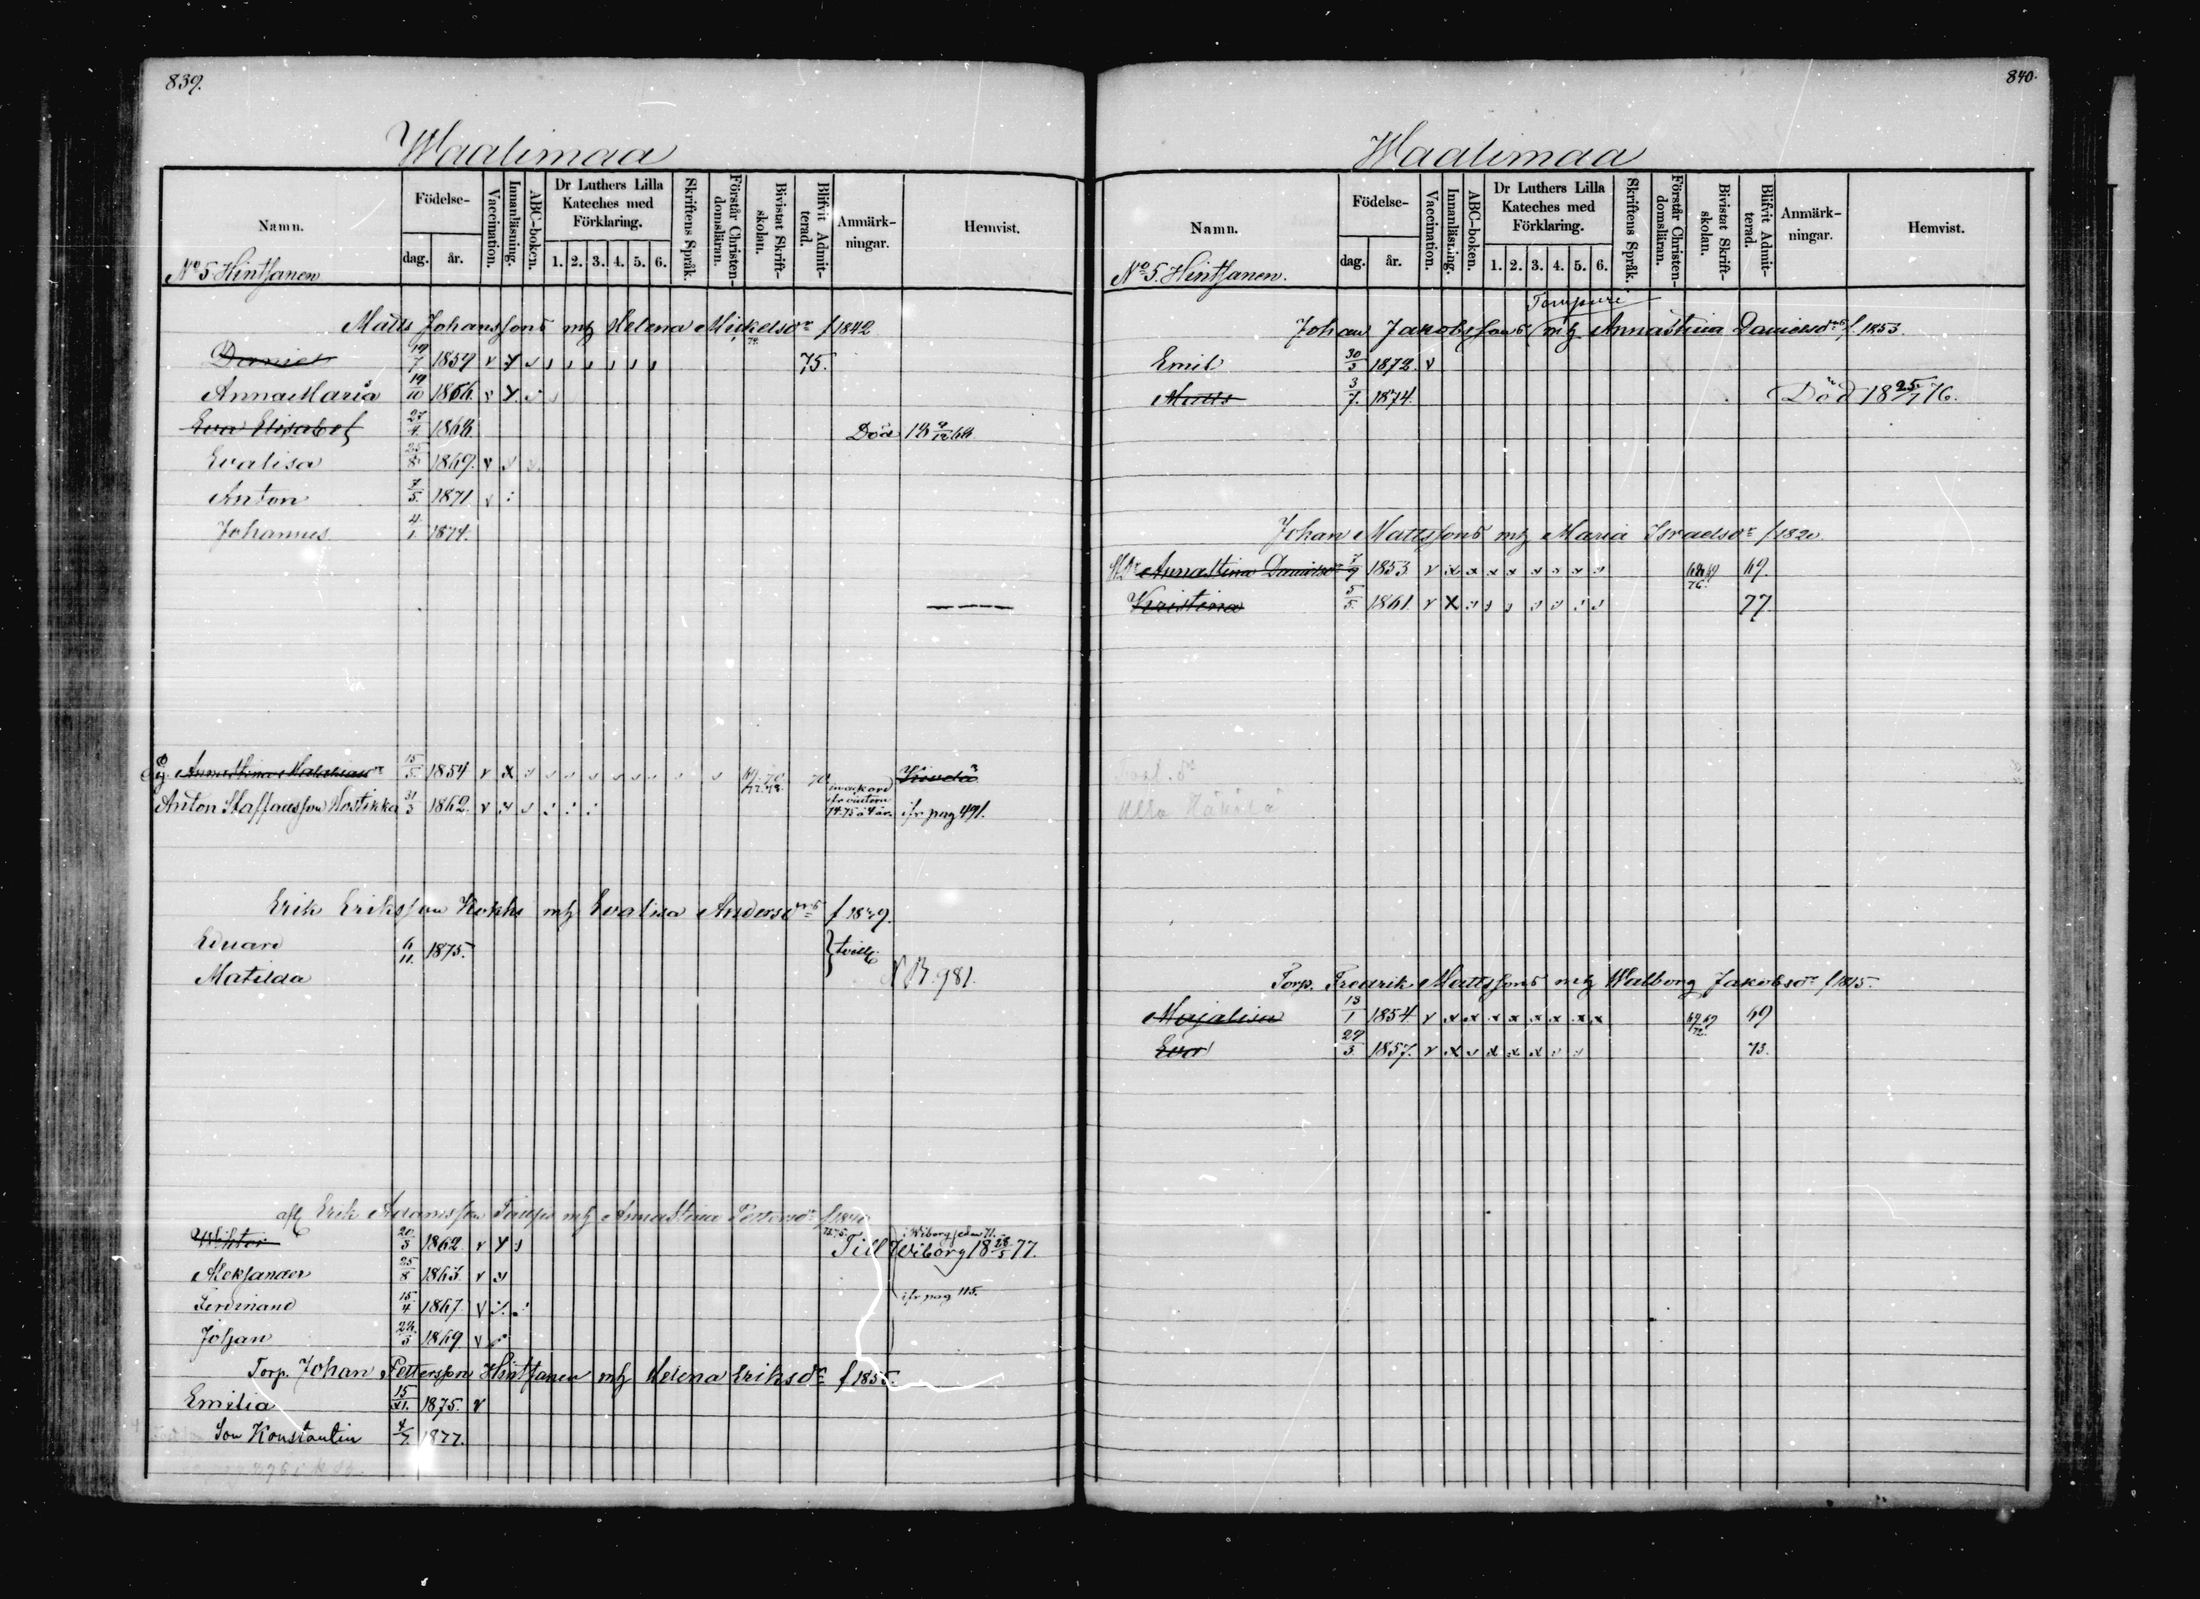 839.
Waalimaa
Namn. Födelse- Vaccination. Innanläsning. ABC-boken. Dr Luthers Lilla Kateches med Förklaring. Skriftens Språk. Förstår Christendomsläran. Bivistat Skriftskolan. Blifvit Admitterad. Anmärkningar. Hemvist.
dag. år. 1. 2. 3. 4. 5. 6.
No 5 Hintsanen
Matts Johanssons mh Helena Mickelsdr f 1842
Daniel 1859 v 75.
Anna Maria 19/10 1866.
Eva Elisabet 27/4 1868. Död
Evalisa 1869. v
Anton 7/5 1871 v
Johannes 4/1 1874.
15/5 1854 v x 70
Anton Staffansson Nostikka 31/3 1862. v ifr pag 491.
Erik Eriksson Kokki mh Evalisa Andersdr f 1849.
Eduard 6/11 1875. tvill.
Matilda
Erik Adamsson mh Annastina Pettersdr f 1840
Wiktor 20/3 1862. v Till Wiborg 18 28/5 77.
Aleksander 25/8 1863. v
ifr pag 115.
Ferdinand 15/4 1867 v
Johan 1869 v
Torp. Johan Pettersson Hintsanen mh Helena Eriksdr f 1855.
Emilia 15/11. 1875. v
Son Konstantin 4/7 1877.
840.
Waalimaa
Namn. Födelse- Vaccination. Innanläsning. ABC-boken. Dr Luthers Lilla Kateches med Förklaring. Skriftens Språk. Förstår Christendomsläran. Bivistat Skriftskolan. Blifvit Admitterad. Anmärkningar. Hemvist.
dag. år. 1. 2. 3. 4. 5. 6.
No 5. Hintsanen.
Tompuri
Johan Jakobssons mh Annastina Danielsdrs f. 1853.
Emil 30/3 1872. v
Matts 3/7. 1874. Död 18 25/7 76.
Johan Mattssons mh Maria Israelsdr f 1820.
Annastina Danielsdr 7/9 1853 v x x x x x x x 69.
Kristina 5/5. 1861. v x 77
Ulla
Torp. Fredrik Mattssons mh Walborg Jakobsdr f 1815.
Majalisa 13/1 1854. v x x x x x x x x 69
Eva 29/3 1857. v x 73.